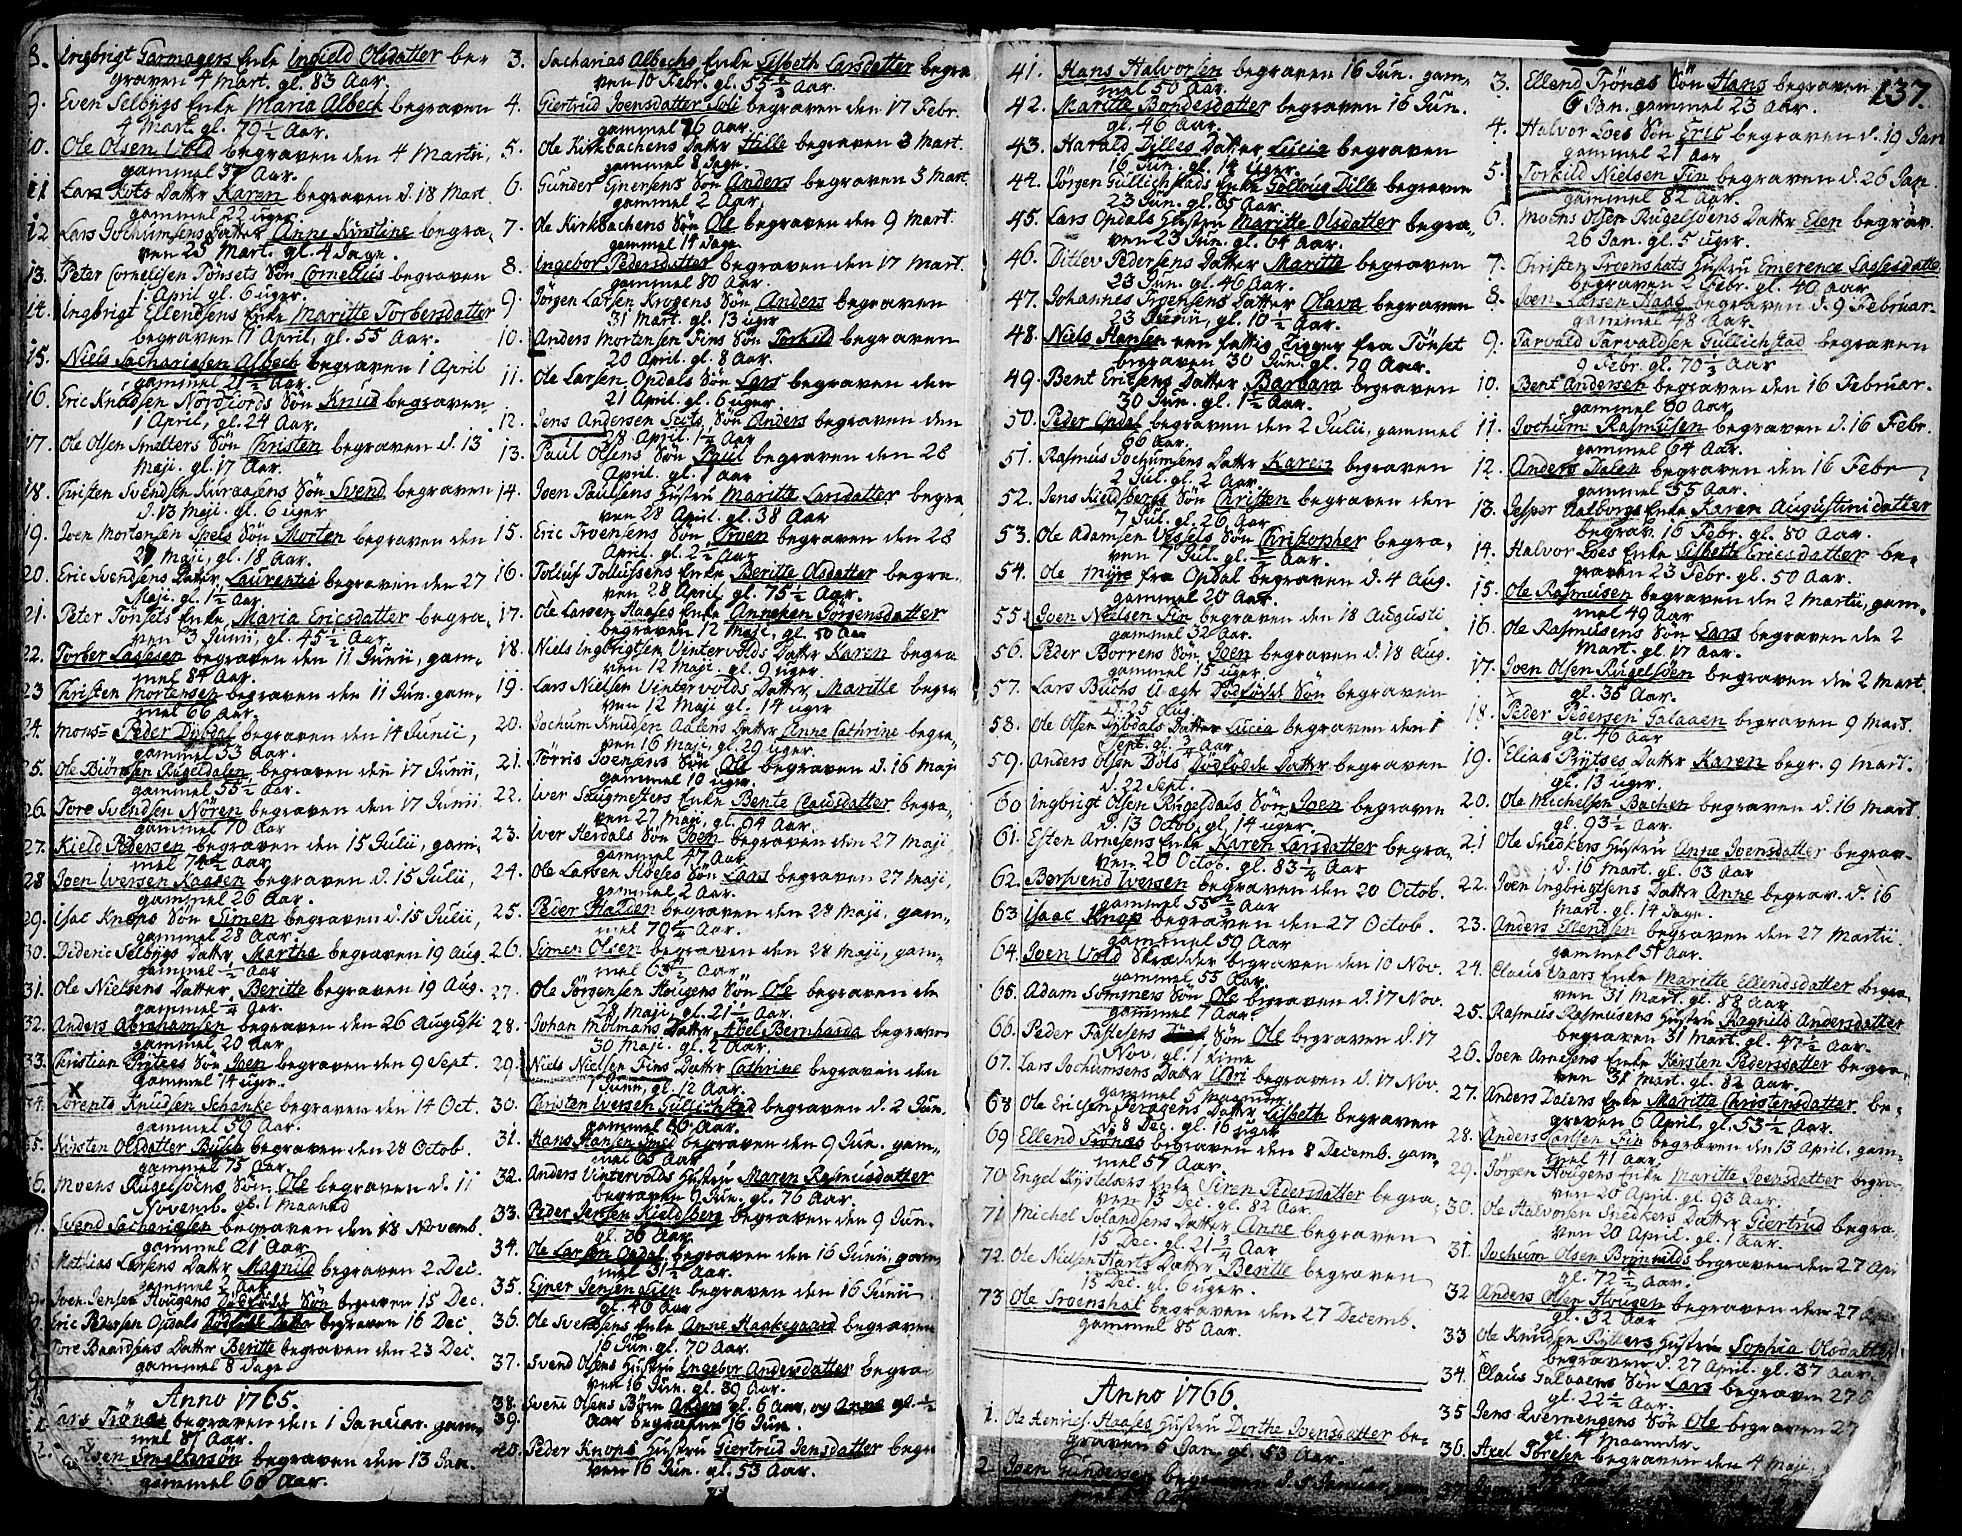 8. Ingbrigt Garmagers Enke Ingield Olsdatter be-
graven 4 Mart. gl. 83 Aar.
9. Even Selbyes Enke Maria Albeck begraven
4 Mart. gl. 79 1/2 Aar.
10. Ole Olsen Vold begraven den 4 Martii,
gammel 57 Aar.
11 Lars Kots Datter Karen begraven d. 18 Mart
gammel 22 uger.
12 Lars Jochumsens Datter Anne Kirstine begra-
ven 25 Mart. gl. 4 Dage.
13. Peter Cornelisen Tönsets Sön Cornelius begraven
1 April gl. 6 uger.
14. Ingbrigt Ellendsens Enke Maritte Torbersdatter
begraven 1 April, gl. 55 Aar.
15. Niels Sachariesen Albech begraven 1 April
gammel 21 1/2 Aar.
16. Eric Knudsen Nordfiords Sön Knud begraven
1 April, gl. 24 Aar.
17. Ole Olsen Smelters Sön Christen begraven d. 13
Maji. gl. 17 Aar.
18. Christen Svendsen Kuraasens Sön Svend begraven
d. 13 Maji. gl. 6 uger
19. Joen Mortensen Spels Sön Morten begraven den
27 Maji, gl. 18 Aar.
20. Eric Svendsens Datter Laurentia begraven den 27
Maji. gl. 1 1/2 Aar
21. Peter Tönsets Enke Maria Ericsdatter begra-
ven 3 Junii, gl. 45 1/2 Aar.
22. Torber Lassesen begraven den 11 Junii, gam-
mel 84 Aar.
23 Christen Mortensen begraven den 11 Jun. gam-
mel 66 Aar.
24. Mons= Peder Dybdal begraven den 14 Junii,
gammel 53 Aar.
25. Ole Biörnsen Rugeldalen begraven den 17 Junii,
gammel 55 1/2 Aar.
26. Tore Svendsen Nören begraven den 17 Junii
gammel 70 Aar
27. Kield Pedersen begraven den 15 Julii, gam-
mel 74 1/2 Aar
28 Joen Iversen Kaasen begraven d. 15 Julii,
gammel 26 Aar.
29. Isac Knops Sön Simen begraven d. 15 Julii,
gammel 28 Aar.
30. Dideric Selbyes Datter Marthe begraven 19 Aug.
gammel 1/2 Aar
31. Ole Nielsens Datter Beritte begraven 19 Aug.
gammel 1/4 Aar.
32. Anders Abrahamsen begraven den 26 Augusti
gammel 20 Aar.
33. Christian Rytters Sön Joen begraven den 9 Sept.
gammel 14 uger.
34. Lorentz Knudsen Schanke begraven den 14 Oct.
gammel 59 Aar.
35. Kirsten Olsdatter Busk begraven den 28 Octob.
gammel 75 Aar
36. Moens Rugelsjöens Sön Ole begraven d. 11
Novemb. gl. 1 Maaned
Svend Sachariesen begraven den 18 Novemb.
gammel 21 Aar
38 Mathias Larsens Datter Magnild begraven 2 Dec.
gammel 2 Aar
Joen Jensen Hougans Dödfödde Sön begraven 15 Dec.
Eric Pedersen Opdals Dödfödde Datter begraven 16 Dec.
Tore Baardsens Datter Beritte begraven den 23 Dec.
gammel 8 Dage
Anno 1765.
1. Lars Trönes begraven den 1 Januar. gam-
mel 87 Aar.
2. Olsen Smeltersön begraven den 13 Jan.
gammel 66 Aar.
3. Sacharias Albechs Enke Lisbeth Larsdatter begra
ven 10 Febr. gl. 55 Aar.
4. Giertrud Joensdatter Soli begraven den 17 Febr.
gammel 76 Aar.
5. Ole Kirkbachens Datter Hille begraven 3 Mart.
gammel 8 Dage.
6. Gunder Ejnersens Sön Anders begraven 3 Mart
gammel 2 Aar.
7. Ole Kirkbachens Sön Ole begraven den 9 Mart.
gammel 14 Dage.
8. Ingebor Pedersdatter begraven den 17 Mart.
gammel 80 Aar.
9. Jörgen Larsen Krogens Sön Anders begraven
31 Mart. gl. 13 uger
10. Anders Mortensen Fins Sön Torkild begraven
20 April. gl. 8 Aar.
11. Ole Larsen Opdals Sön Lars begraven den
21 April. gl. 6 uger
12. Jens Andersen Seits Sön Anders begraven den
28 April. 1 1/2 Aar
13. Paul Olsens Sön Paul begraven den 28
April. gl. 1 Aar
14. Joen Paulsens Hustru Maritte Larsdatter begra
ven 28 April. gl. 38 Aar
15. Eric Troensens Sön Troen begraven den 28
April. gl. 2 1/2 Aar
16. Tolluf Tollufsens Enke Beritte Olsdatter begra.
ven 28 April. gl. 75 1/2 Aar.
17. Ole Larsen Haases Enke Anneken Jörgensdatter
begraven 12 Maji. gl. 50 Aar
18. Niels Ingbrigtsen Vintervolds Datter Karen begra
ven 12 Maji. gl. 9 uger.
19. Lars Nielsen Vintervolds Datter Maritte begra
ven 12 Maji gl. 14 uger
20. Jochum Knudsen Aalens Datter Anne Cathrine begra-
ven 16 Maji, gl. 29 uger.
21. Törris Joensens Sön Ole begraven d. 16 Maji
gammel 10 uger.
22. Iver Saugmesters Enke Bente Clausdatter begra-
ven 27 Maji, gl. 64 Aar.
23. Iver Herdals Sön Joen begraven den 27 Maji,
gammel 47 Aar
24. Ole Larsen Hoeses Sön Lars begraven 27 Maji,
gammel 2 Aar.
25. Peder Halden begraven den 28 Maji. gam-
mel 70 1/4 Aar.
26. Simen Olsen begraven den 28 Maji, gam-
mel 63 1/2 Aar
27. Ole Jörgensen Hougens Sön Ole begraven de
28 Maji, gl. 21 Aar.
28. Johan Molmans Datter Abel Bernharda begraven
30 Maji. gl. 2 Aar.
29. Niels Nielsen Fins Datter Cathrine begraven den
7 Junii, gl. 12 Aar.
30. Christen Iversen Gullichstad begraven d. 2 Jun.
gammel 66 Aar.
31. Hans Hansen Smed begraven den 9 Jun. gam-
mel 65 Aar
32. Anders Vintervolds Hustru Maren Rasmusdatter
begraven 9 Jun. gl. 76 Aar.
33. Peder Jensen Kieldsberg begraven den 9 Jun.
gl. 36 Aar.
34. Ole Larsen Opdal begraven den 16 Junii, gam
mel 31 1/2 Aar.
35. Ejner Jensen Lien begraven den 16 Junii
gl. 46 Aar
36. Ole Svendsens Enke Anne Haakegaard begraven
16 Jun. gl. 70 Aar.
37. Svend Olsens Hustru Ingebor Andersdatter begra
ven 16 Jun. gl. 39 Aar.
38. Svend Olsens Börn Anders gl. 6 Aar, og Anne gl. 1/2
39. Aar begravne 16 Jun.
40. Peder Knops Hustru Giertrud Jensdatter begra
ven 16 Jun. gl. 53 Aar.
41. Hans Halvorsen begraven 16 Jun. gam-
mel 50 Aar.
42. Maritte Bondesdatter begraven 16 Jun.
gl. 46 Aar.
43. Harald Dilles Datter Lucia begraven
16 Jun. gl. 14 uger.
44. Jörgen Gullichstads Enke Solloug Dille begraven
23 Jun. gl. 85 Aar.
45. Lars Opdals Hustru Maritte Olsdatter begra-
ven 23 Jun. gl. 64 Aar.
46. Ditlev Pedersens Datter Maritte begraven
23 Jun. gl. 46 Aar.
47. Johannes Troensens Datter Olava begraven
23 Junii, gl. 10 1/2 Aar.
48. Niels Hansen een fattig Tigger fra Tönset
begraven 30 Jun. gl. 70 Aar.
49. Bent Ericsens Datter Barbara begraven
30 Jun. gl. 1 1/2 Aar.
50. Peder Opdal begraven den 2 Julii, gammel
66 Aar.
51. Rasmus Jochumsens Datter Karen begraven
2 Jul. gl. 2 Aar.
52. Jens Kieldsbergs Sön Christen begraven den
7 Jul. gl. 26 Aar
53. Ole Adamsen Vessels Sön Christopher begra-
ven 7 Jul. gl. Aar.
54. Ole Myre fra Opdal begraven d. 4 Aug.
gammel 20 Aar.
55. Joen Nielsen Fin begraven den 18 Augusti
gammel 32 Aar.
56. Peder Borrens Sön Joen begraven d. 18 Aug.
gammel 15 uger.
57. Lars Buchs Uægte Dödfödde Sön begraven
d. 25 Aug.
58. Ole Olsen Dybdals Datter Lucia begraven den 1
Sept. gl. 3/4 Aar
59. Anders Olsen Döls Dödfödde Datter begraven
d. 22 Sept.
60 Ingbrigt Olsen Rugeldals Sön Joen begraven
d. 13 Octob. gl. 14 uger.
61. Esten Arnesens Enke Karen Larsdatter begra-
ven 20 Octob. gl. 83 1/4 Aar
62. Bersvend Iversen begraven den 20 Octob.
gammel 55 Aar
63 Isaac Knop begraven den 27 Octob.
gammel 59 Aar
64. Joen Vold Skrædder begraven den 10 Nov.
gammel 55 Aar
65. Adam Sommers Sön Ole begraven d. 17 Nov.
gammel 7 Aar.
66. Peder Sön Ole begraven d. 17
Nov. gl. 1 Time
67. Lars Jochumsens Datter begraven d. 17 Nov.
gammel 5 Maaneder
68 Ole Ericsen Datter Lisbeth begraven
8 Dec. gl. 16 uger
69 Ellend Trönes begraven den 8 Decemb. gam-
mel 57 Aar.
70 Engel Enke Siren Pedersdatter begra
ven 15 Dec. gl. 82 Aar.
71 Michel Solandsens Datter Anne begraven
15 Dec. gl. 21 3/4 Aar
72. Ole Nielsen Harts Datter Beritte begraven
15 Dec. gl. 6 uger.
73 Ole Troenshat begraven den 27 Decemb.
gammel 85 Aar.
Anno 1766.
1. Ole Henrics. Haases Hustru Dorthe Joensdatter be-
graven 5 Jan. gl. 53 Aar.
2. Joen Gundersen begraven d. Januar,
137.
3. Ellend Trönes Sön Hans begraven
6 Jan. gammel 23 Aar.
4. Halvor Loes Sön Eric begraven d. 19 Jan
gammel 21 Aar
5. Torkild Nielsen Fin begraven d. 26 Jan.
gammel 82 Aar.
6. Moens Olsen Rugelsöens Datter Elen begrav.
26 Jan. gl. 5 uger.
7. Christen Troenshats Hustru Emerence Lassesdatte
begraven 2 Febr. gl. 40 Aar
8. Joen Larsen Haas begraven d. 9 Februar.
gammel 48 Aar
9. Tarvald Tarvaldsen Gullichstad begraven
9 Febr. gl. 70 1/2 Aar
10. Bent Andersen begraven den 16 Februar.
gammel 60 Aar
11. Jochum Rasmusen begraven d. 16 Febr.
gammel 64 Aar.
12. Anders Dalen begraven den 16 Febr
gammel 55 Aar.
13. Jesper Aalborgs Enke Karen Augustinidatter
begrav. 16 Febr. gl. 80 Aar.
14. Halvor Loes Enke Lisbeth Ericsdatter be-
graven 23 Febr. gl. 50 Aar.
15. Ole Rasmusen begraven den 2 Martii, gam-
mel 49 Aar
16. Ole Rasmusens Sön Lars begraven den 2
Mart. gl. 17 Aar.
17. Joen Olsen Rugelsöen begraven den 2 Mart.
gl. 35 Aar.
18. Peder Pedersen Galaaen begraven 9 Mart.
gl. 46 Aar
19. Elias Rytses Datter Karen begr. 9 Mart.
gl. 13 uger.
20. Ole Michelsen Bachen begraven d. 16 Mart.
gl. 93 1/2 Aar.
21 Ole Snedkers Hustru Anne Joensdatter begrav-
d. 16 Mart. gl. 63 Aar
22. Joen Ingbrigtsens Datter Anne begrav. d. 16
Mart. gl. 14 Dage.
23. Anders begraven den 27 Martii
gammel 51 Aar.
24. Claus Vaars Enke Maritte Ellendsdatter begra-
ven 31 Mart. gl. 82 Aar
25. Rasmus Rasmusens Hustru Ragnild Andersdatter
begraven 31 Mart. gl. 47 1/2 Aar.
26. Joen Arnesens Enke Kirsten Pedersdatter begra-
ven 31 Mart. gl. 82 Aar.
27. Anders Dalens Enke Maritta Christensdatter be-
graven 6 April, gl. 53 1/2 Aar.
28. Anders Carlsen Fin begraven den 13 April, gam-
mel 41 Aar
29. Jörgen Hougens Enke Maritte Joensdatter begra-
ven 20 April. gl. 93 Aar.
30. Ole Halvorsen Snedkers Datter Giertrud begra-
ven 20 April. gl. 1 Aar.
31. Jochum Olsen Brönvolds begraven den 27 Apr
gl. 72 1/2 Aar.
32 Anders Olsen Hougen begraven den 27 Ap
gl. 32 Aar
33 Ole Knudsen Rytters Hustru Sophia Olsdatter
begraven d. 27 April. gl. 37 Aar.
34. Claus Galaaens Sön Lars begraven 27
gl. 22 1/2 Aar.
35 Jens Qvernengens Sön Ole begraven 27
gl. 4 Maaneder.
36. Axel Toresen begraven den 4 Maji,
37.